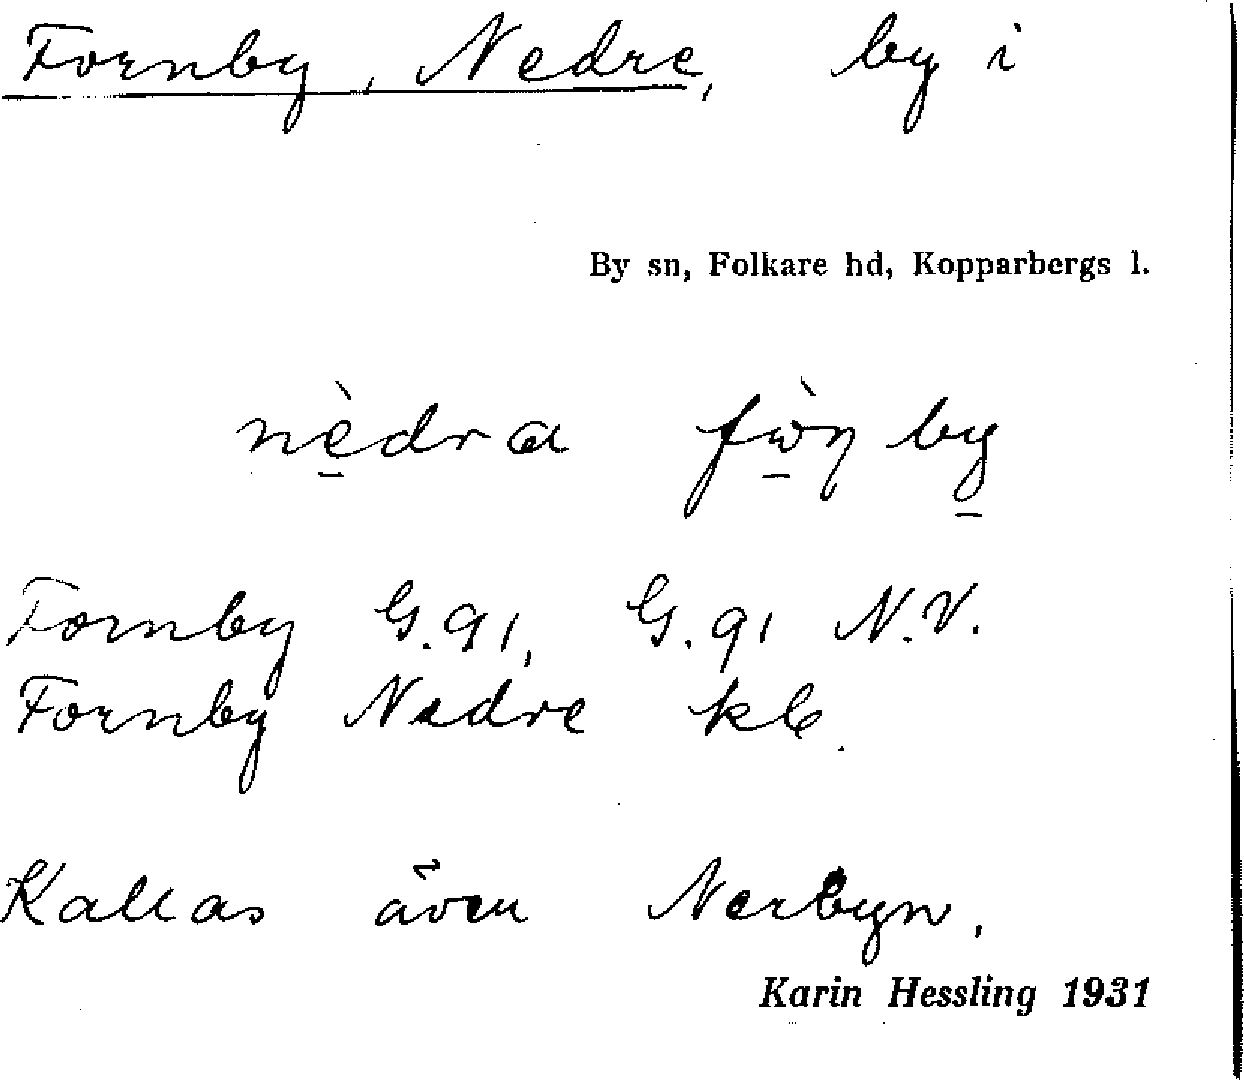 Fornby, Nedre, by i
By sn, Folkare hd, Kopparbergs l.
nèdra fὼn by
Fornby G.91, G.91 N.V.
Fornby Nedre kb.
Kallas även Nerbyn.
Karin Hessling 1931